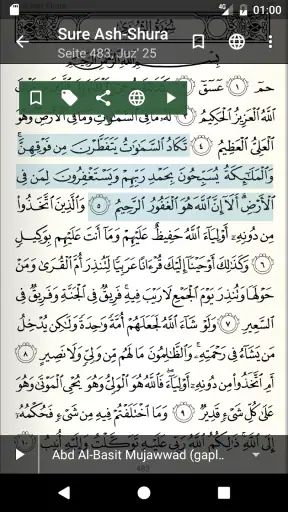 01:00
Sure Ash-Shura
Seite 483, Juz' 25
حمٓ ١ عٓسٓقٓ
ٱللَّهُ ٱلْعَزِيزُ ٱلْحَكِيمُ
ٱلْعَلِىُّ ٱلْعَظِيمُ ٤ تَكَادُ ٱلسَّمَٰوَٰتُ يَتَفَطَّرْنَ مِن فَوْقِهِنَّ
وَٱلْمَلَٰٓئِكَةُ يُسَبِّحُونَ بِحَمْدِ رَبِّهِمْ وَيَسْتَغْفِرُونَ لِمَن فِى
ٱلْأَرْضِ أَلَآ إِنَّ ٱللَّهَ هُوَ ٱلْغَفُورُ ٱلرَّحِيمُ ٥ وَٱلَّذِينَ ٱتَّخَذُوا۟
مِن دُونِهِۦٓ أَوْلِيَآءَ ٱللَّهُ حَفِيظٌ عَلَيْهِمْ وَمَآ أَنتَ عَلَيْهِم بِوَكِيلٍ
٦ وَكَذَٰلِكَ أَوْحَيْنَآ إِلَيْكَ قُرْءَانًا عَرَبِيًّا لِّتُنذِرَ أُمَّ ٱلْقُرَىٰ وَمَنْ
حَوْلَهَا وَتُنذِرَ يَوْمَ ٱلْجَمْعِ لَا رَيْبَ فِيهِ فَرِيقٌ فِى ٱلْجَنَّةِ وَفَرِيقٌ فِى
ٱلسَّعِيرِ ٧ وَلَوْ شَآءَ ٱللَّهُ لَجَعَلَهُمْ أُمَّةً وَٰحِدَةً وَلَٰكِن يُدْخِلُ
مَن يَشَآءُ فِى رَحْمَتِهِۦ وَٱلظَّٰلِمُونَ مَا لَهُم مِّن وَلِىٍّ وَلَا نَصِيرٍ ٨
أَمِ ٱتَّخَذُوا۟ مِن دُونِهِۦٓ أَوْلِيَآءَ فَٱللَّهُ هُوَ ٱلْوَلِىُّ وَهُوَ يُحْىِ ٱلْمَوْتَىٰ وَهُوَ
عَلَىٰ كُلِّ شَىْءٍ قَدِيرٌ ٩ وَمَا ٱخْتَلَفْتُمْ فِيهِ مِن شَىْءٍ فَحُكْمُهُۥٓ
إِلَى ٱللَّهِ ذَٰلِكُمُ ٱللَّهُ رَبِّى عَلَيْهِ تَوَكَّلْتُ وَإِلَيْهِ أُنِيبُ ١٠
Abd Al-Basit Mujawwad (gapl..
483